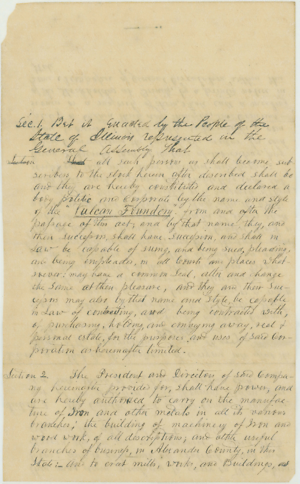 Sec. 1. Be it Enacted by the People of the
State of Illinois represented in the
General Assembly That
all such persons as shall become sub-
scribers to the stock herein after described shall be
and they are hereby constituted and declared a
body politic and corporate by the name and style
of the "Vulcan Foundery" from and after the
passage of this act, and by that name, they, and
their successors, shall have succession, and shall in
law be capable of suing, and being sued, pleading,
and being impleaded, in all Courts and places what
soever: may have a common Seal, alter and change
the same at their pleasure, and they and their suc-
cessors may also by that name and style be capable
in law of contracting, and being contracted with,
of purchasing, holding, and conveying away, real &
personal estate, for the purposes, and uses of said Cor-
poration as hereinafter limited.
Section 2. The President and Directors of said Compa-
ny, hereinafter provided for, shall have power, and
are hereby authorized to carry on the manufac-
ture of Iron and other metals in all its various
branches; the building of machinery of Iron and
wood work, of all descriptions, and other useful
branches of business, in Alexander County, in this
State: and to erect mills, works, and Buildings, and